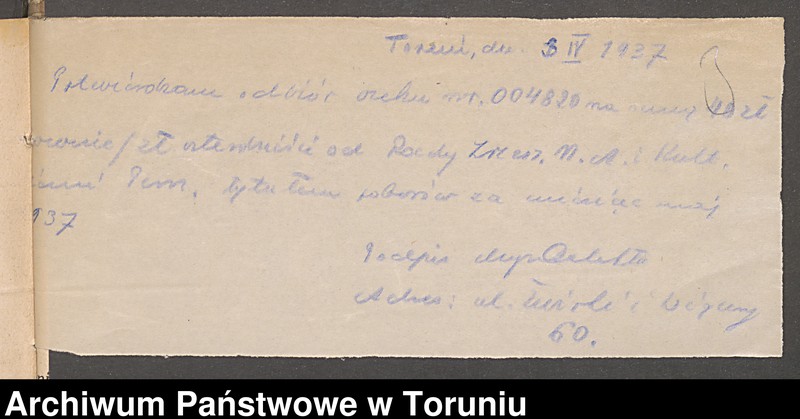 Toruń, dn. 8 IV 1937
Potwierdzam odbiór czeku nr. 004820 na sumę 40 zł
/zł czterdzieści od Rady Zrzesz. N. A. i Kult.
Pom. tytułem poborów za miesiąc maj
937
Podpis
Adres: ul. Żwirki i Wigury
60.
Archiwum Państwowe w Toruniu